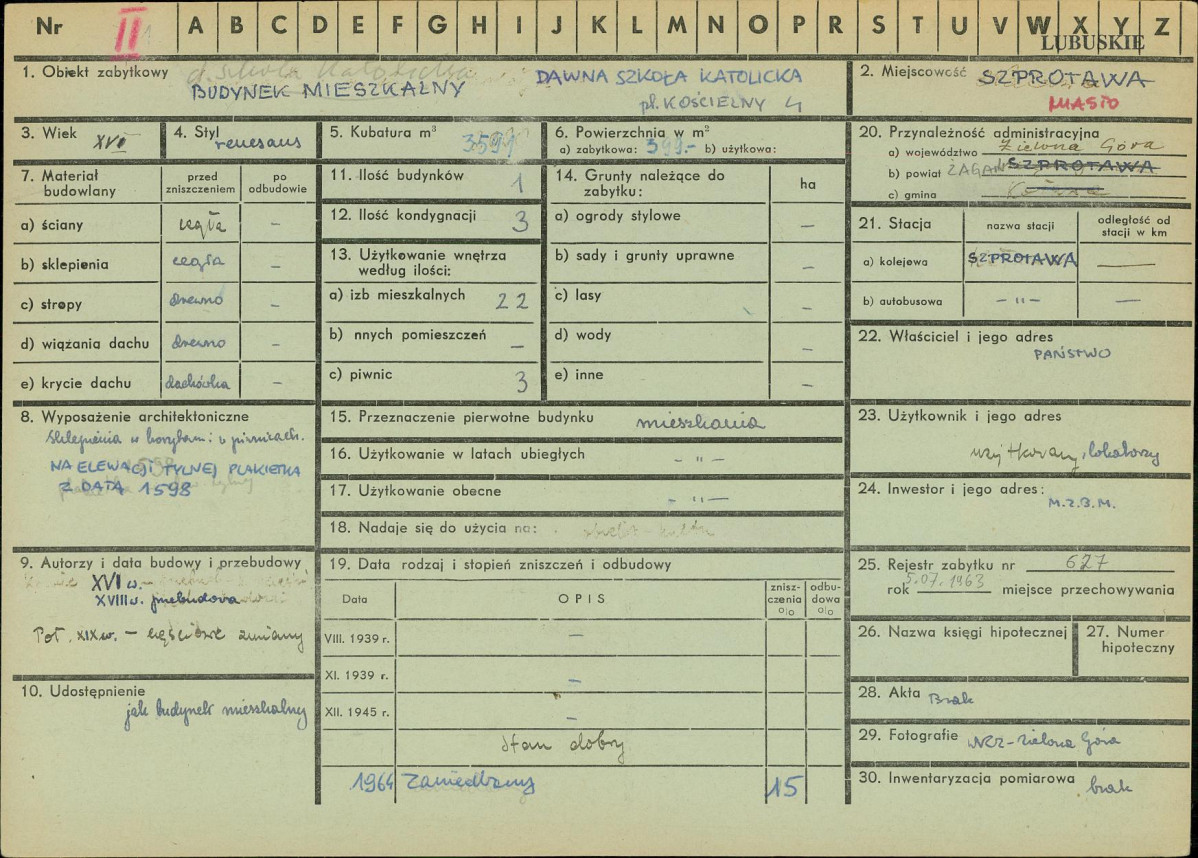 Nr II A B C D E F G H I J K L M N O P R S T U V W X Y Z
LUBUSKIE
1. Obiekt zabytkowy d. Szkoła Katolicka
BUDYNEK MIESZKALNY
DAWNA SZKOŁA KATOLICKA
pl. KOŚCIELNY 4
2. Miejscowość SZPROTAWA
MIASTO
3. Wiek XVI
4. Styl renesans
5. Kubatura m³ 3591
6. Powierzchnia w m²
a) zabytkowa: 399.- b) użytkowa:
20. Przynależność administracyjna
a) województwo Zielona Góra
b) powiat ŻAGAŃ SZPROTAWA
c) gmina
7. Materiał budowlany
przed zniszczeniem
po odbudowie
a) ściany cegła –
b) sklepienia cegła –
c) stropy drewno –
d) wiązania dachu drewno –
e) krycie dachu dachówka –
11. Ilość budynków 1
12. Ilość kondygnacji 3
13. Użytkowanie wnętrza
według ilości:
a) izb mieszkalnych 22
b) nnych pomieszczeń –
c) piwnic 3
14. Grunty należące do
zabytku:
ha
a) ogrody stylowe –
b) sady i grunty uprawne –
c) lasy –
d) wody –
e) inne –
21. Stacja
nazwa stacji
odległość od
stacji w km
a) kolejowa SZPROTAWA —
b) autobusowa – " – —
22. Właściciel i jego adres
PAŃSTWO
8. Wyposażenie architektoniczne
Sklepienia w korytarzu i piwnicach.
NA ELEWACJI TYLNEJ PLAKIETKA
Z DATĄ 1598
15. Przeznaczenie pierwotne budynku mieszkania
16. Użytkowanie w latach ubiegłych – " –
17. Użytkowanie obecne – " –
18. Nadaje się do użycia na:
23. Użytkownik i jego adres
użytkowany, lokatorzy
24. Inwestor i jego adres:
M.Z.B.M.
9. Autorzy i data budowy i przebudowy
XVI w.
XVIII w. przebudowa
Poł. XIX w. – częściowe zmiany
19. Data rodzaj i stopień zniszczeń i odbudowy
Data
OPIS
znisz-
czenia
%
odbu-
dowa
%
VIII. 1939 r. –
XI. 1939 r. –
XII. 1945 r. –
stan dobry
1964 zaniedbany 15
25. Rejestr zabytku nr 627
rok 5.07.1963 miejsce przechowywania
26. Nazwa księgi hipotecznej
27. Numer
hipoteczny
10. Udostępnienie
jak budynek mieszkalny
28. Akta Brak
29. Fotografie WKZ-Zielona Góra
30. Inwentaryzacja pomiarowa brak